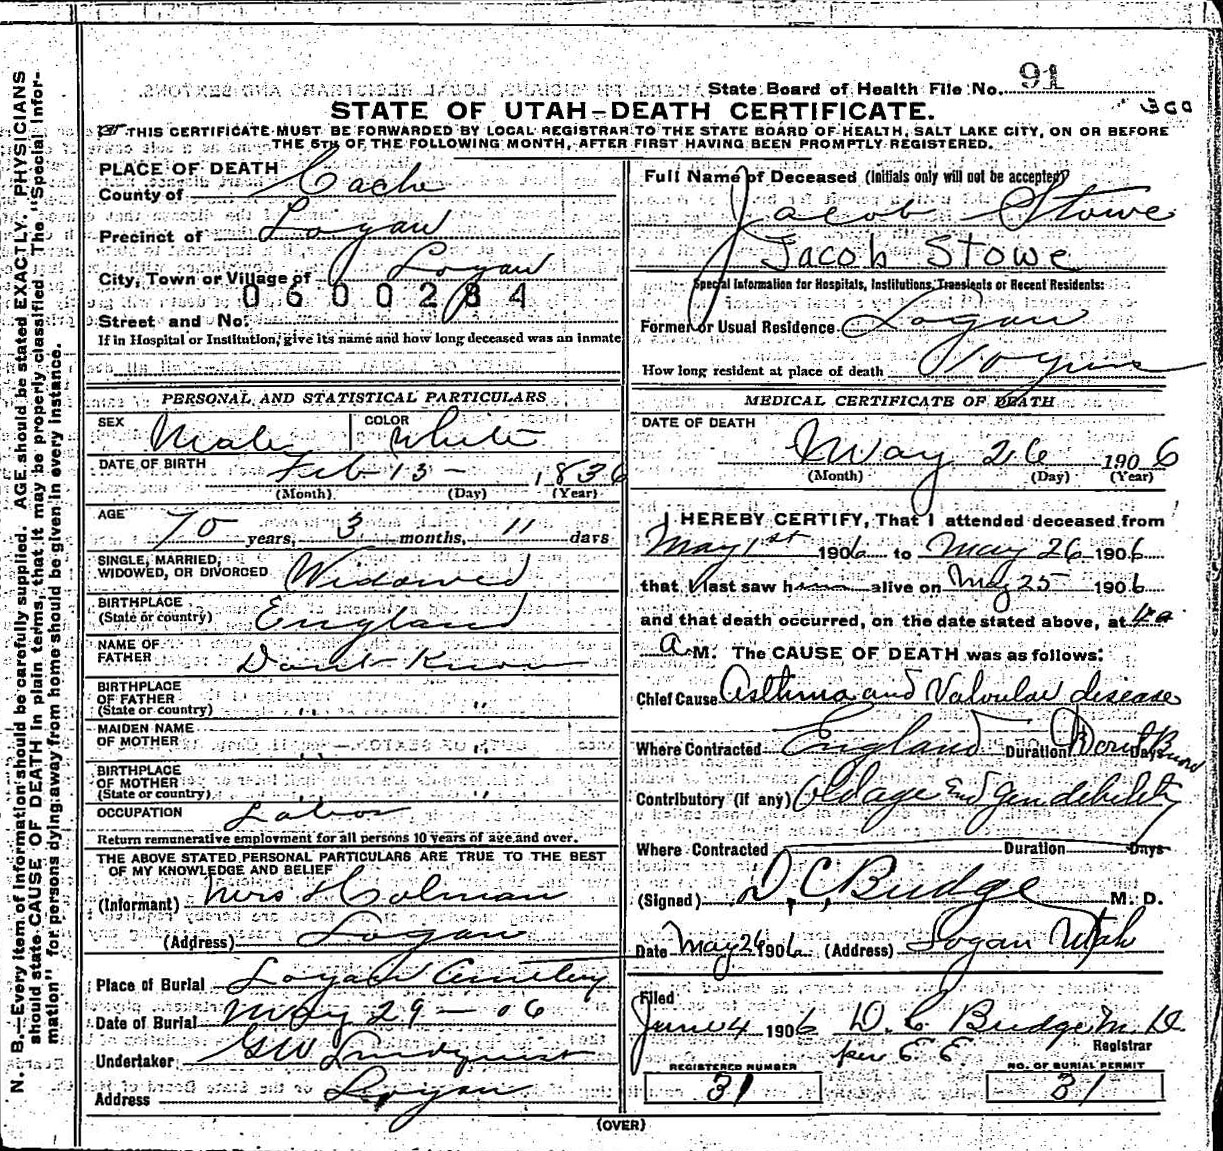 State Board of Health File No. 91
STATE OF UTAH–DEATH CERTIFICATE.
THIS CERTIFICATE MUST BE FORWARDED BY LOCAL REGISTRAR TO THE STATE BOARD OF HEALTH, SALT LAKE CITY, ON OR BEFORE
THE 5TH OF THE FOLLOWING MONTH, AFTER FIRST HAVING BEEN PROMPTLY REGISTERED.
N. B.—Every item of information should be carefully supplied. AGE should be stated EXACTLY. PHYSICIANS
should state CAUSE OF DEATH in plain terms, that it may be properly classified. The "Special Infor-
mation" for persons dying away from home should be given in every instance.
PLACE OF DEATH
County of Cache
Precinct of Logan
City, Town or Village of Logan
0600284
Street and No.
If in Hospital or Institution, give its name and how long deceased was an inmate
PERSONAL AND STATISTICAL PARTICULARS
SEX Male COLOR White
DATE OF BIRTH Feb 15 - 1836
(Month) (Day) (Year)
AGE 70 years, 3 months, 11 days
SINGLE, MARRIED,
WIDOWED, OR DIVORCED Widowed
BIRTHPLACE
(State or country) England
NAME OF
FATHER Dont Know
BIRTHPLACE
OF FATHER
(State or country) " "
MAIDEN NAME
OF MOTHER " "
BIRTHPLACE
OF MOTHER
(State or country) "
OCCUPATION Labor
Return remunerative employment for all persons 10 years of age and over.
THE ABOVE STATED PERSONAL PARTICULARS ARE TRUE TO THE BEST
OF MY KNOWLEDGE AND BELIEF
(Informant) Mrs Holman
(Address) Logan
Place of Burial Logan Cemetery
Date of Burial May 29 - 06
Undertaker GW Lindquist
Address Logan
Full Name of Deceased (Initials only will not be accepted)
Jacob Stowe
Jacob Stowe
Special Information for Hospitals, Institutions, Transients or Recent Residents:
Former or Usual Residence Logan
How long resident at place of death
MEDICAL CERTIFICATE OF DEATH
DATE OF DEATH
May 26 1906
(Month) (Day) (Year)
I HEREBY CERTIFY, That I attended deceased from
May 1st 1906 to May 26 1906
that I last saw him alive on May 25 1906
and that death occurred, on the date stated above, at 4
a M. The CAUSE OF DEATH was as follows:
Chief Cause Asthma and Valvular disease
Where Contracted England Duration Dont Know Days
Contributory (if any) Old age and gen debility
Where Contracted Duration Days
(Signed) D. C. Budge M. D.
Date May 26 1906 (Address) Logan Utah
Filed
June 4 1906 D. C. Budge M. D.
per E E Registrar
REGISTERED NUMBER NO. OF BURIAL PERMIT
31 31
(OVER)